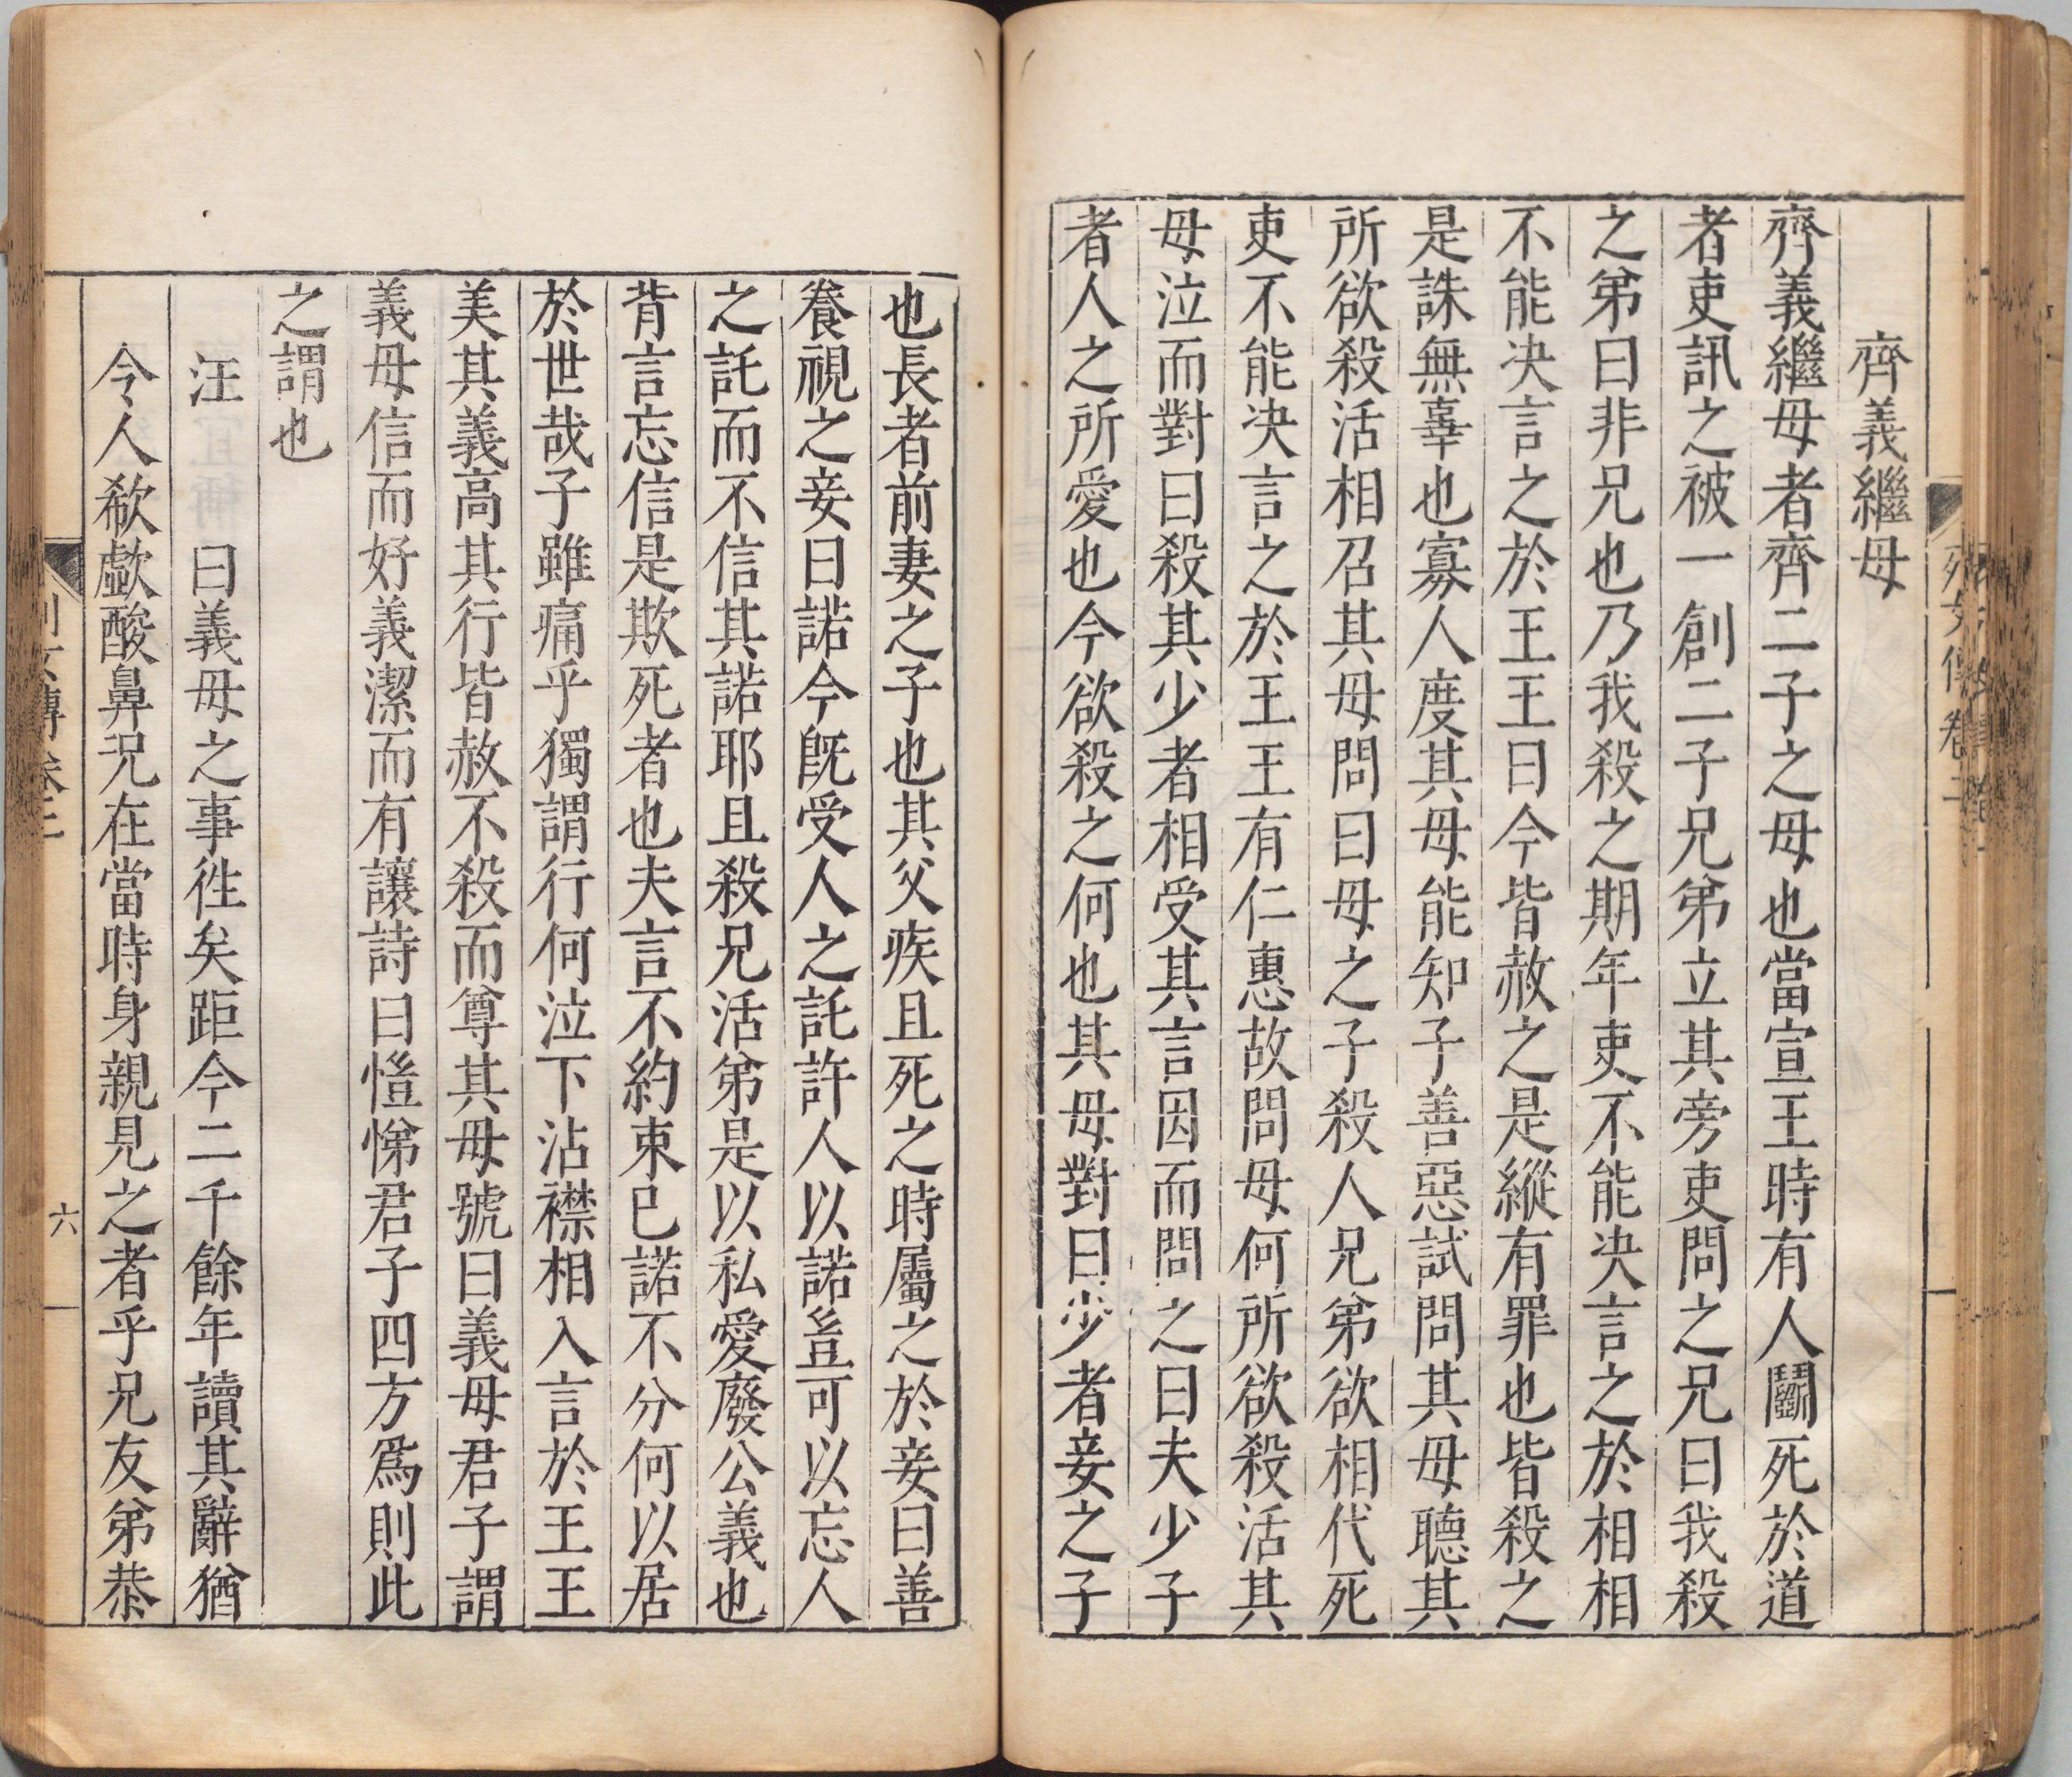 齊義繼母
齊義繼母者齊二子之母也當宣王時有人鬭死於道
者吏訊之被一創二子兄弟立其旁吏問之兄曰我殺
之弟曰非兄也乃我殺之期年吏不能决言之於相相
不能决言之於王王曰今皆赦之是縱有罪也皆殺之
是誅無辜也寡人度其母能知子善惡試問其母聽其
所欲殺活相召其母問曰母之子殺人兄弟欲相代死
吏不能决言之於王王有仁惠故問母何所欲殺活其
母泣而對曰殺其少者相受其言因而問之曰夫少子
者人之所愛也今欲殺之何也其母對曰少者妾之子
也長者前妻之子也其父疾且死之時屬之於妾曰善
養視之妾曰諾今旣受人之託許人以諾豈可以忘人
之託而不信其諾耶且殺兄活弟是以私愛廢公義也
背言忘信是欺死者也夫言不約束已諾不分何以居
於世哉子雖痛乎獨謂行何泣下沾襟相入言於王王
美其義高其行皆赦不殺而尊其母號曰義母君子謂
義母信而好義潔而有讓詩曰愷悌君子四方爲則此
之謂也
汪　曰義母之事徃矣距今二千餘年讀其辭猶
令人欷歔酸鼻况在當時身親見之者乎兄友弟恭
列女傳卷二
六